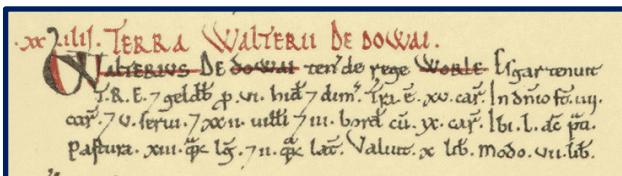 .XXIIII. TERRA WALTERII DE DOWAI.
WALTERIUS DE DOWAI ten' de rege WORLE. Esgar tenuit
T.R.E. 7 geldb' p. vi. hid' 7 dim'. Tra. e. xv. car'. In dnio st. iiii.
car'. 7 v. serui. 7 xxii. uilli 7 iii. bord' cu. ix. car'. Ibi. l. ac' pti.
Pastura. xiii. qrc lg. 7 ii. qrc lat'. Valuit. x lib'. Modo. vii. lib'.